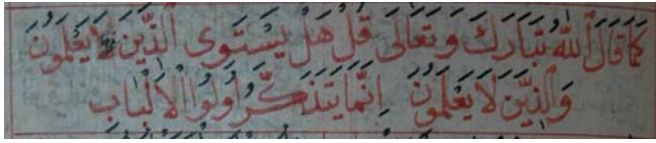 كَمَا قَالَ ٱللّٰهُ تَبَارَكَ وَتَعَالَىٰ قُلْ هَلْ يَسْتَوِى ٱلَّذِينَ يَعْلَمُونَ
وَٱلَّذِينَ لَا يَعْلَمُونَ اِنَّمَا يَتَذَكَّرُ اُولُوا الْاَلْبَابِ